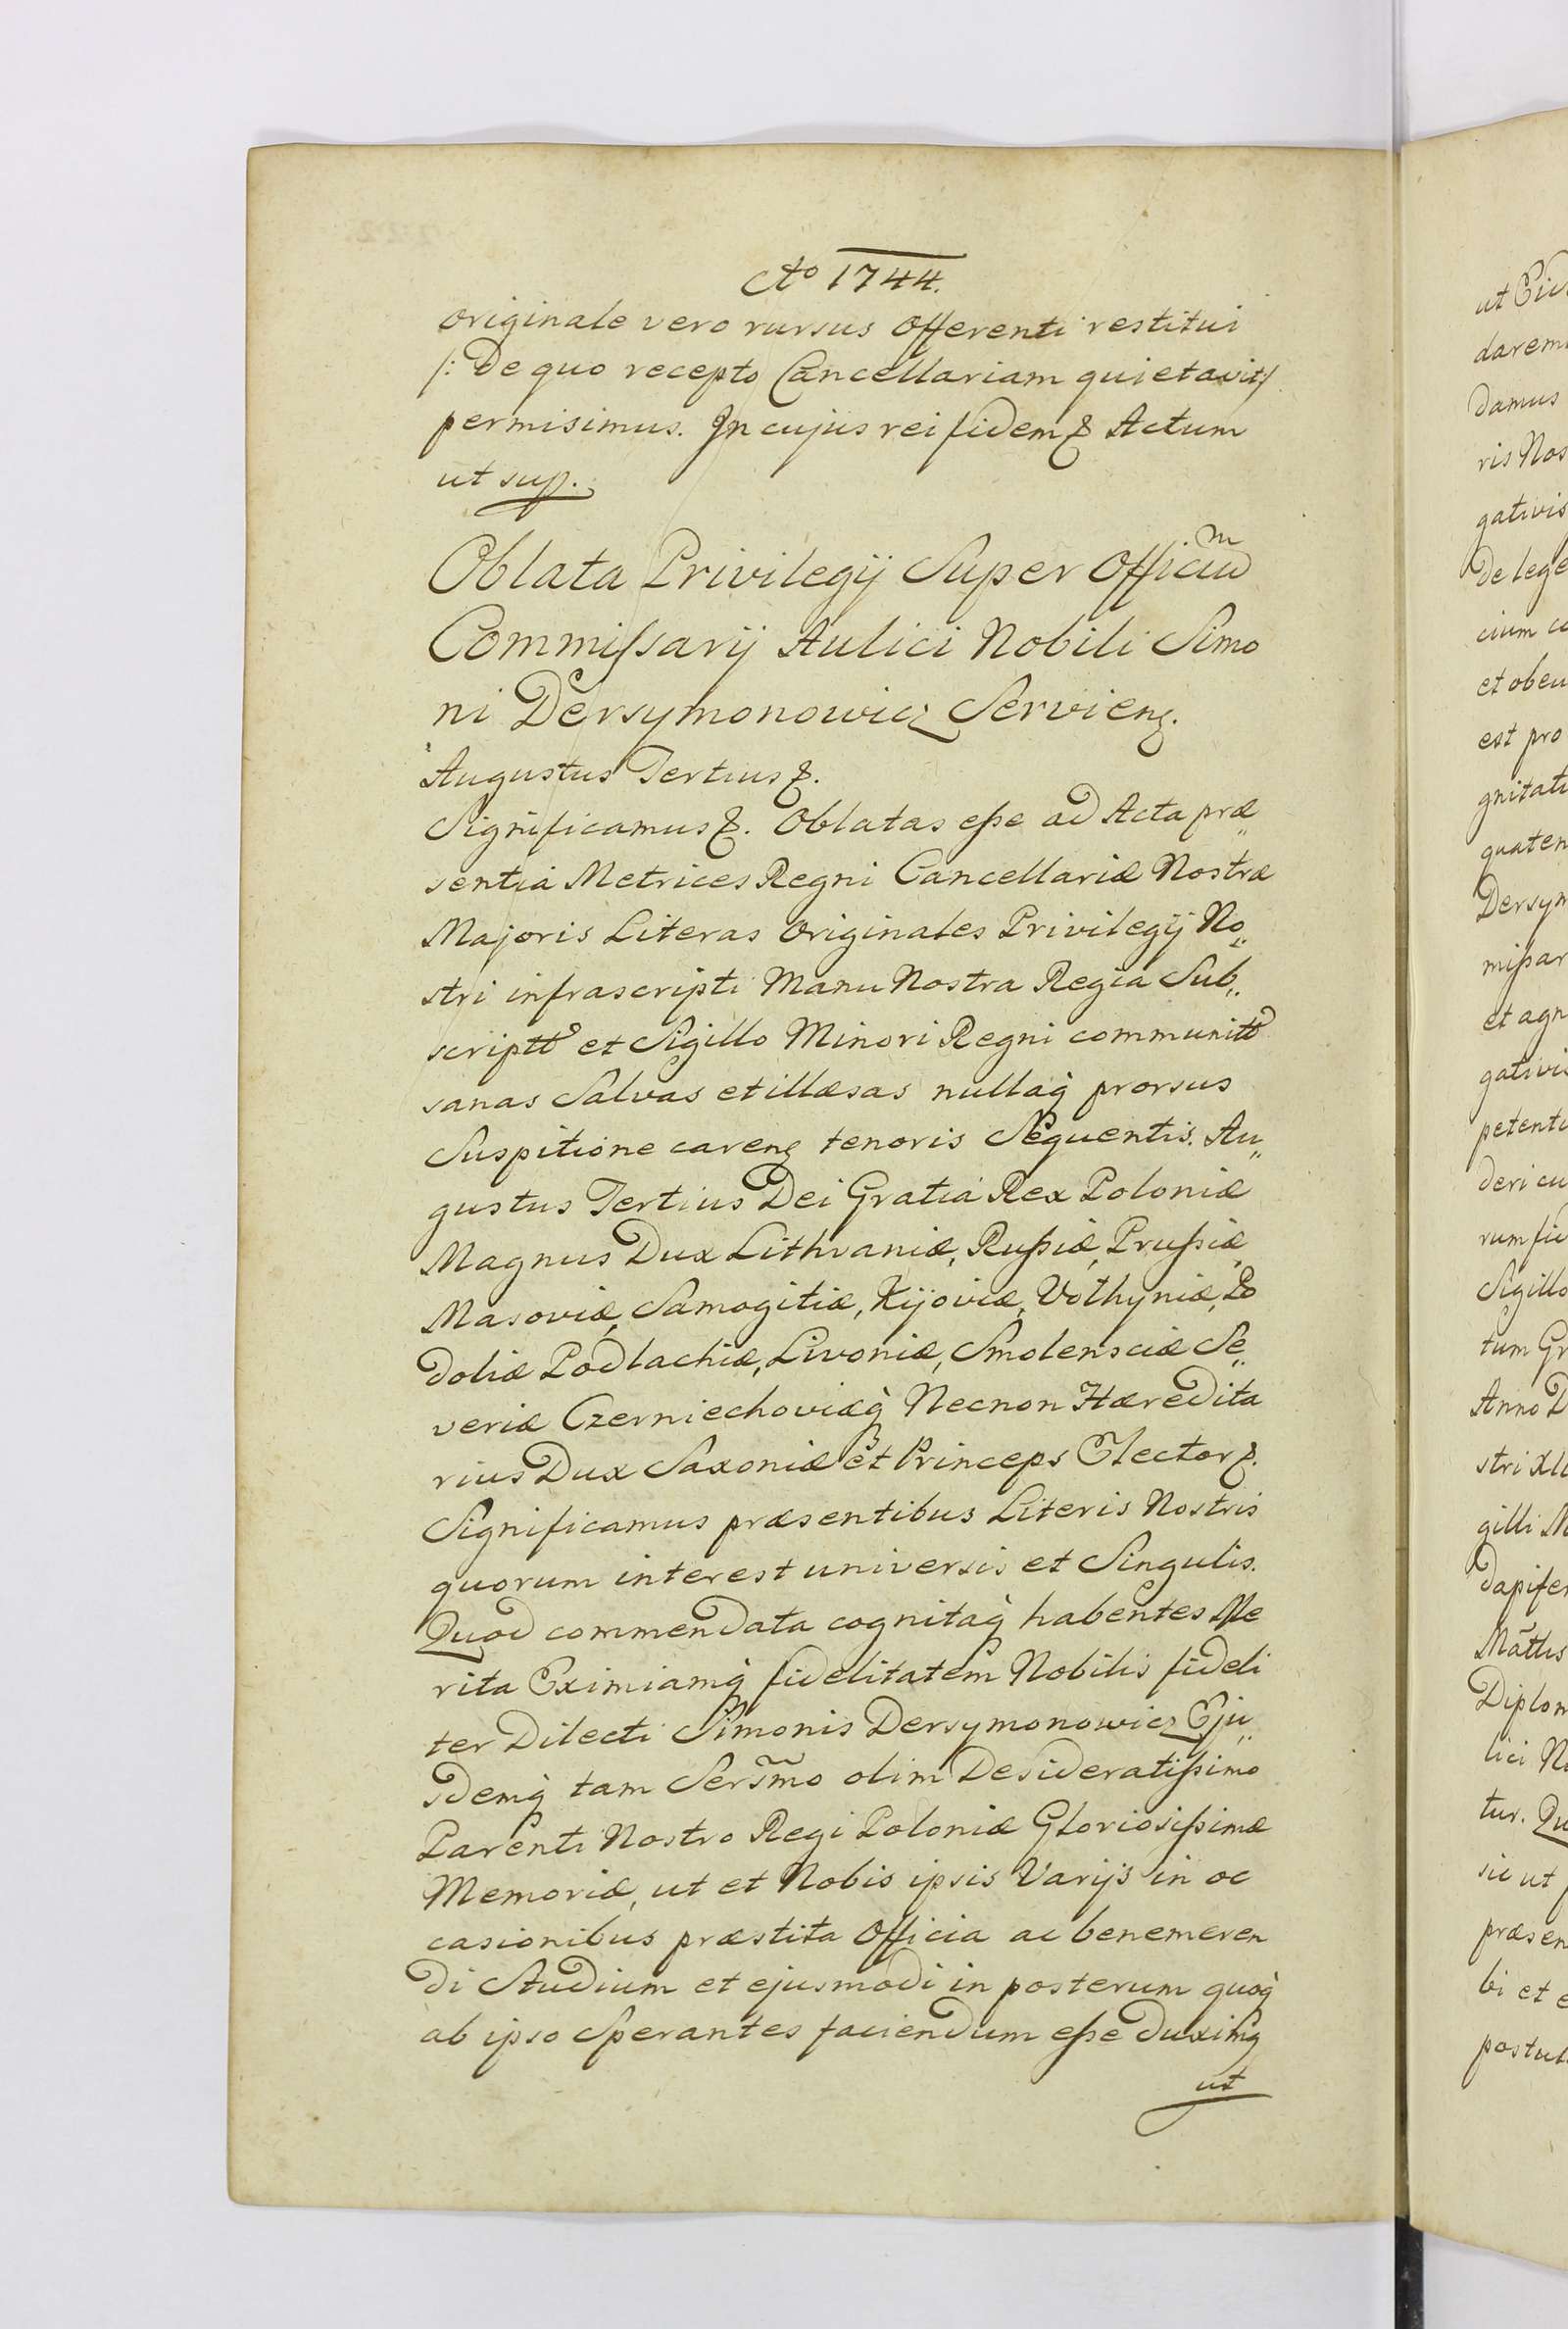 Ao 1744.
originale vero rursus Offerenti restitui
/: De quo recepto Cancellariam quietavit/
permisimus. In cujus rei fidem &. Actum
ut sup.
Oblata Privilegij Super Officiū
Commiſsarij Aulici Nobili Simo
ni Dersymonowicz Servieng.
Augustus Tertius &.
Significamus &. Oblatas eſse ad Acta præ„
sentia Metrices Regni Cancellariæ Nostræ
Majoris Literas Originales Privilegij No„
stri infrascripti Manu Nostra Regia Sub„
scriptt et Sigillo Minori Regni communitt
sanas Salvas et illæsas nullaq̀ prorsus
Suspitione careng tenoris Sequentis. Au„
gustus Tertius Dei Gratia Rex Poloniæ
Magnus Dux Lithvaniæ, Ruſsiæ, Pruſsiæ,
Masoviæ, Samogitiæ, Kijoviæ, Volhyniæ, Po
doliæ Podlachiæ, Livoniæ, Smolensciæ Se„
veriæ Czerniechoviæq̀ Necnon Hæredita
rius Dux Saxoniæ et Princeps Elector &.
Significamus præsentibus Literis Nostris
quorum interest universis et Singulis.
Quod commendata cognitaq̀ habentes Me
rita Eximiamq̀ fidelitatem Nobilis fideli
ter Dilecti Simonis Dersymonowicz Eju„
sdemq̀ tam Sersm̃o olim Desideratiſsimo
Parenti Nostro Regi Poloniæ Gloriosiſsimæ
Memoriæ, ut et Nobis ipsis Varijs in oc
casionibus præstita Officia ac benemeren
di Studium et ejusmodi in posterum quoq̀
ab ipso Sperantes faciendum eſse duximg
ut
ut
darem
damus
ris Nos
gativis
De lege
cium
et obeu
est pro
gnitati
quaten
Dersym
miſsar
et agn
gativis
petenti
deri cu
rum fid
Sigillo
tum Gr
Anno D
stri
gilli
Dapifer
Mattis
Diplom
lici
tur.
sic ut
præsen
bi et
postul